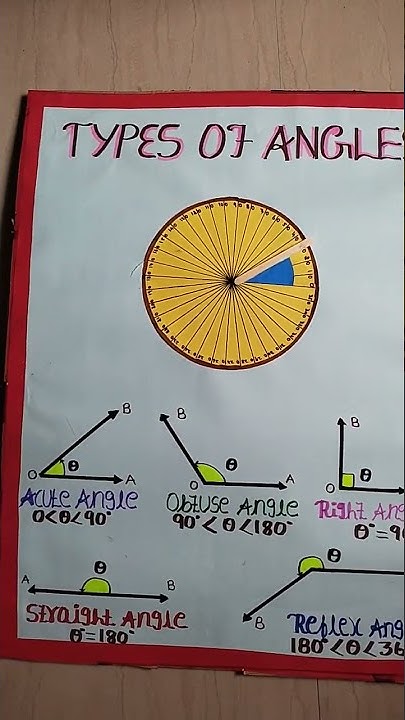 TYPES OF ANGLE
B
O
θ
A
Acute Angle
0<θ<90°
B
O
θ
A
Obtuse Angle
90°<θ<180°
B
O
θ
Right Ang
θ°=9
A
θ
B
Straight Angle
θ°=180°
θ
B
Reflex Ang
180°<θ<36